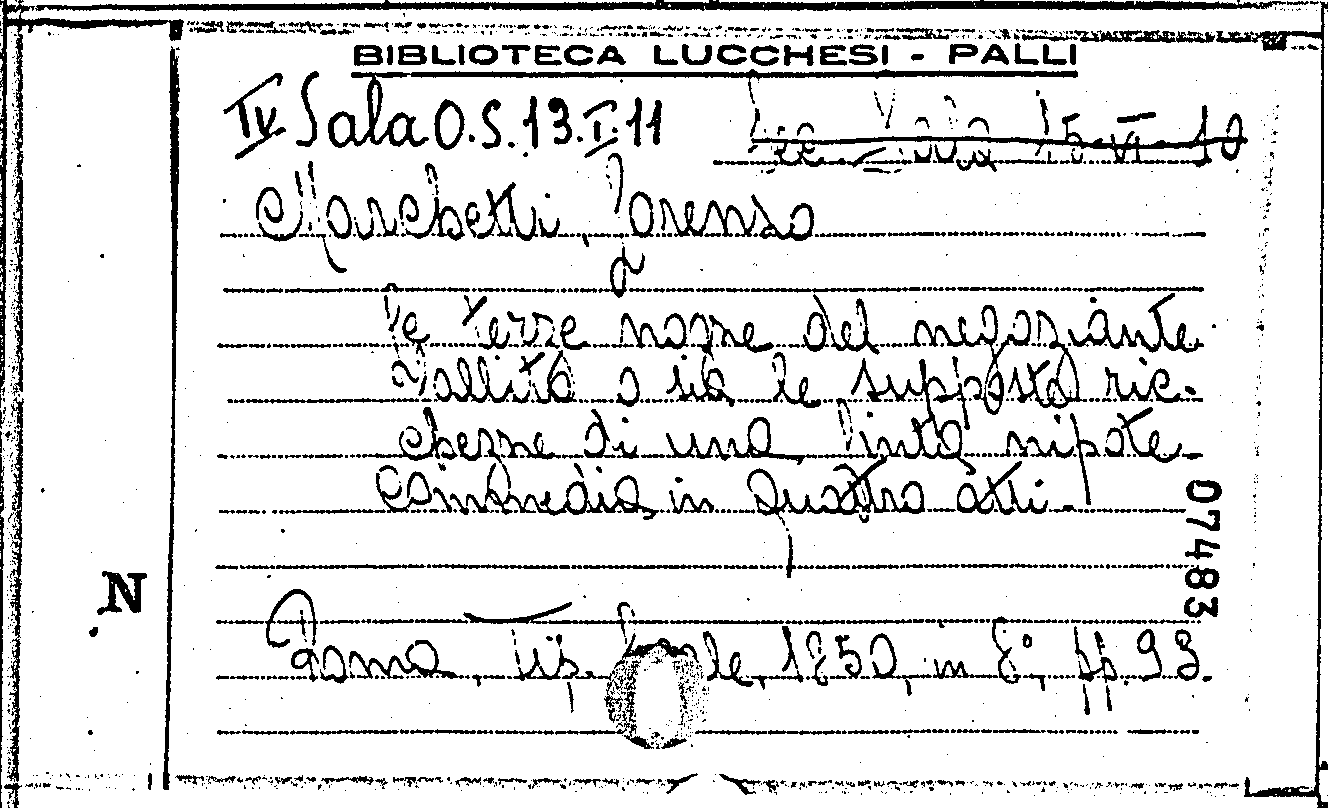 BIBLIOTECA LUCCHESI - PALLI
IV Sala O.S.13.I.11
Sala 15-VI-10
Marchetti, Lorenzo
Le terze nozze del negoziante
fallito o sia le supposte ric-
chezze di una finta nipote.
Commedia in quattro atti.
07483
N
Roma, Tip. 1850, in 8°, pp. 93.